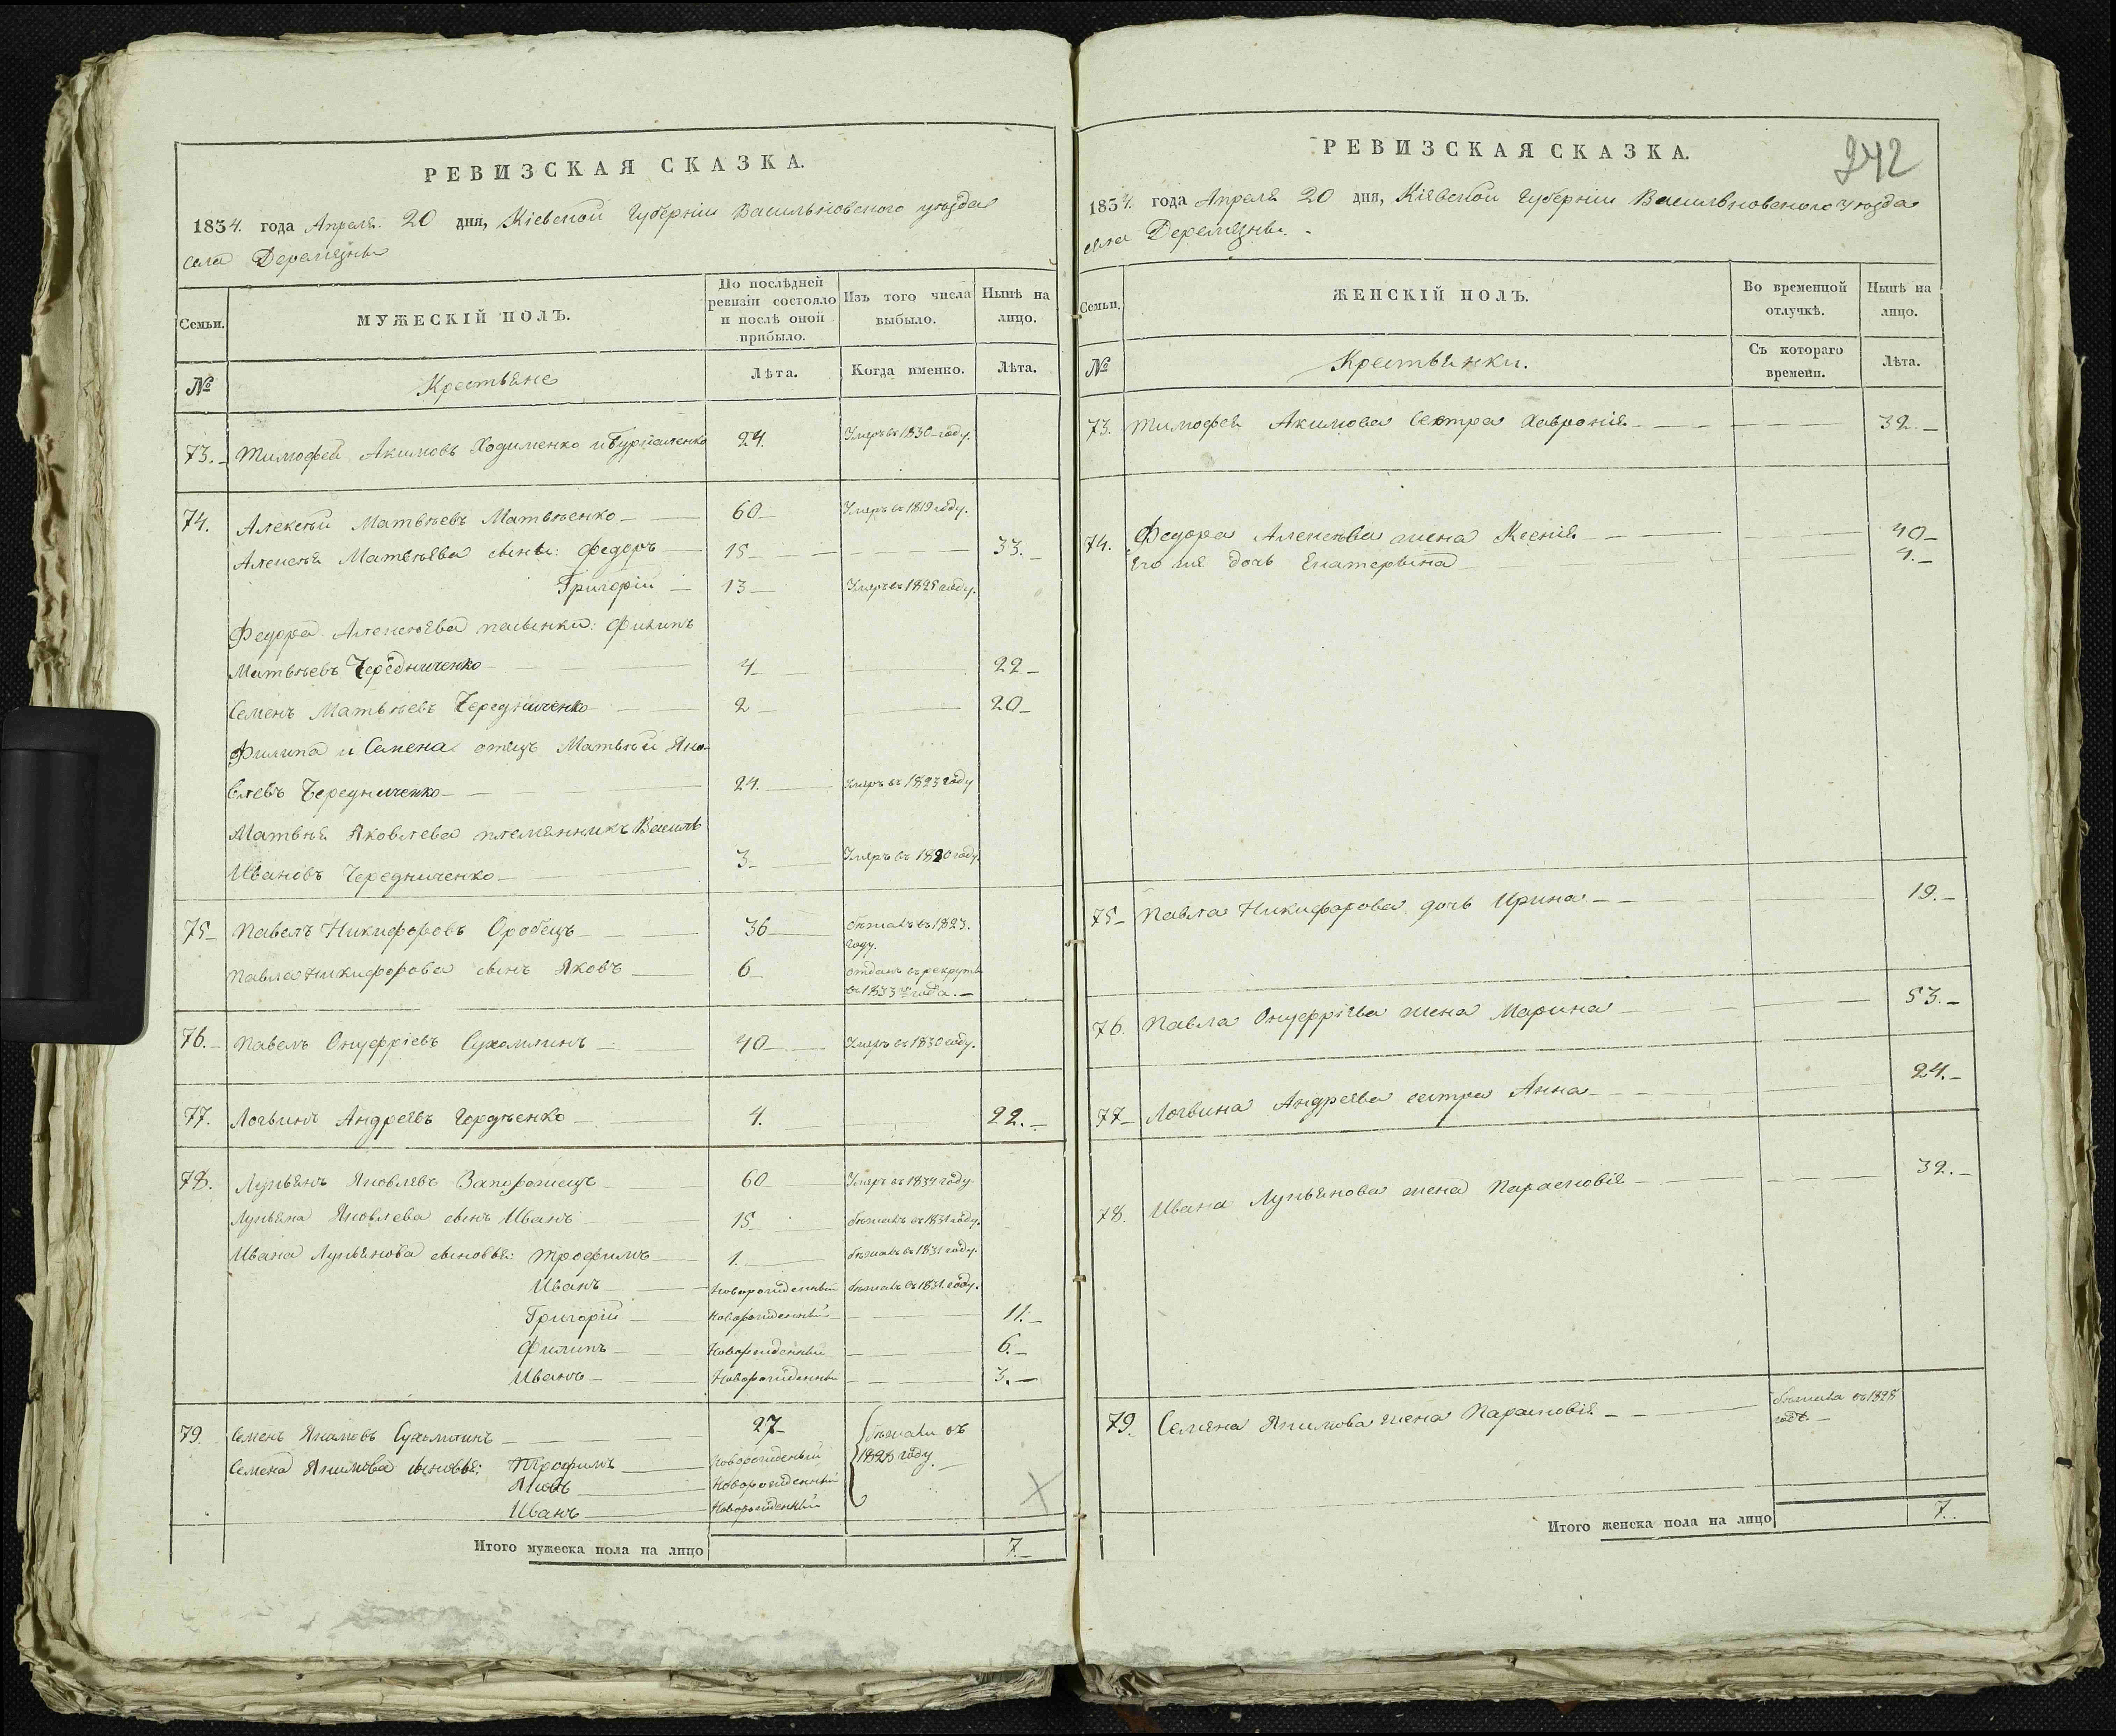 РЕВИЗСКАЯ СКАЗКА.
1834. года Апреля 20 дня, Кіевской Губерніи Васильковского уезда
села Деремезны
Семьи. МУЖЕСКІЙ ПОЛЪ. По послѣдней ревизіи состояло и послѣ оной прибыло. Изъ того числа выбыло. Нынѣ на лицо.
№ Крестьяне Лѣта. Когда именно. Лѣта.
73. Тимофей Акимовъ Ходименко 24 Умеръ въ 1830 году.
74. Алексѣй Матвѣевъ Матвѣенко 60 Умеръ въ 1819 году.
Алексѣя Матвѣева сыны: Федоръ 15 33.
Григорій 13 Умеръ въ году.
Федора Алексѣева пасынки: Филипъ
Матвѣевъ Чередниченко 4 22
Семенъ Матвѣевъ Чередниченко 2 20
Филипа и Семена отецъ Матвѣй Яко-
влевъ Чередниченко 24. Умеръ въ 1823 году
Матвѣя Яковлева племянникъ Василь
Ивановъ Чередниченко 3 Умеръ въ 1820 году.
75 Павелъ Никифоровъ Оробецъ 36 бѣжалъ въ 1823. году.
Павла Никифорова сынъ Яковъ 6 отданъ въ рекруты въ 1833 года.
76. Павелъ Онуфріевъ Сухомлинъ 40 Умеръ въ 1830 году.
77. Логвинъ Андреевъ Гордѣенко 4. 22.
78. Лукьянъ Яковлевъ Запорожецъ 60 Умеръ въ 1834 году.
Лукьяна Яковлева сынъ Иванъ 15 бѣжалъ въ 1831 году.
Ивана Лукьянова сыновья: Трофимъ 1. бѣжалъ въ 1831 году.
Иванъ Новорожденный бѣжалъ въ 1831. году.
Григорій Новорожденный 11.
Филипъ Новорожденный 6.
Иванъ Новорожденный 3.
79. Семенъ Якимовъ Сухомлинъ 27 бѣжали въ
Семена Якимова сыновья: Трофимъ Новорожденый 1828 году
Яковъ Новорожденный
Иванъ Новорожденный
Итого мужеска пола на лицо 7.
242
РЕВИЗСКАЯ СКАЗКА.
1834. года Апреля 20 дня, Кіевской Губерніи Васильковского уезда
села Деремезны.
Семьи. ЖЕНСКІЙ ПОЛЪ. Во временной отлучкѣ. Нынѣ на лицо.
№ Крестьянки. Съ котораго времени. Лѣта.
73. Тимофея Акимова сестра Хавронія 32.
74. Федора Алексѣева жена Ксенія 40
его же дочь Екатерына 4.
75 Павла Никифорова дочь Ирина 19.
76. Павла Онуфріева жена Марина 53.
77 Логвина Андреева сестра Анна 24.
78. Ивана Лукьянова жена Парасковія 32.
79. Семена Якимова жена Парасковія бѣжала въ 1828 годе.
Итого женска пола на лицо 7.